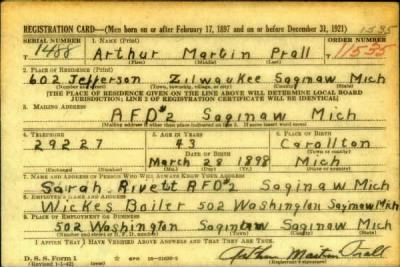 REGISTRATION CARD—(Men born on or after February 17, 1897 and on or before December 31, 1921)
SERIAL NUMBER 1. NAME (Print) ORDER NUMBER
1488 Arthur Martin Prall 11535
2. PLACE OF RESIDENCE (Print)
602 Jefferson Zilwaukee Saginaw Mich
(Number and street) (Town, township, village, or city) (County) (State)
[THE PLACE OF RESIDENCE GIVEN ON THE LINE ABOVE WILL DETERMINE LOCAL BOARD
JURISDICTION; LINE 2 OF REGISTRATION CERTIFICATE WILL BE IDENTICAL]
3. MAILING ADDRESS
RFD#2 Saginaw Mich
[Mailing address if other than place indicated on line 2. If same insert word same]
4. TELEPHONE 5. AGE IN YEARS 6. PLACE OF BIRTH
29227 43 Carollton
DATE OF BIRTH
March 28 1898 Mich
7. NAME AND ADDRESS OF PERSON WHO WILL ALWAYS KNOW YOUR ADDRESS
Sarah Rivett RFD#2 Saginaw Mich
8. EMPLOYER'S NAME AND ADDRESS
Wickes Boiler 502 Washington Saginaw Mich
9. PLACE OF EMPLOYMENT OR BUSINESS
502 Washington Saginaw Saginaw Mich
(Number and street or R. F. D. number) (Town) (County) (State)
I AFFIRM THAT I HAVE VERIFIED ABOVE ANSWERS AND THAT THEY ARE TRUE.
D. S. S. Form 1
(Revised 1-5-42) Arthur Martin Prall